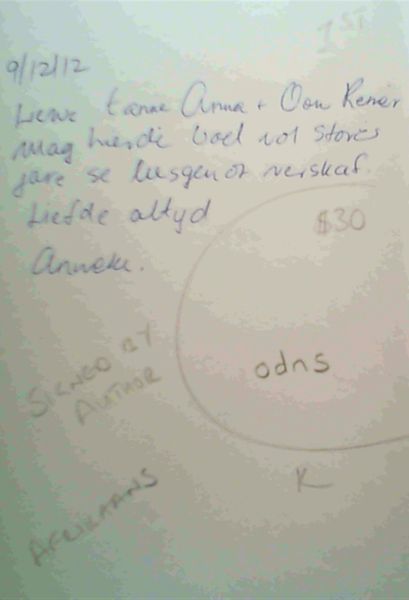 1ST
9/12/12
Liewe tannie Anna + Oom Renier
mag hierdie boek vol stories
jare se leesgenot verskaf.
Liefde altyd
Anneke.
$30
SIGNED BY
AUTHOR
odns
K
AFRIKAANS